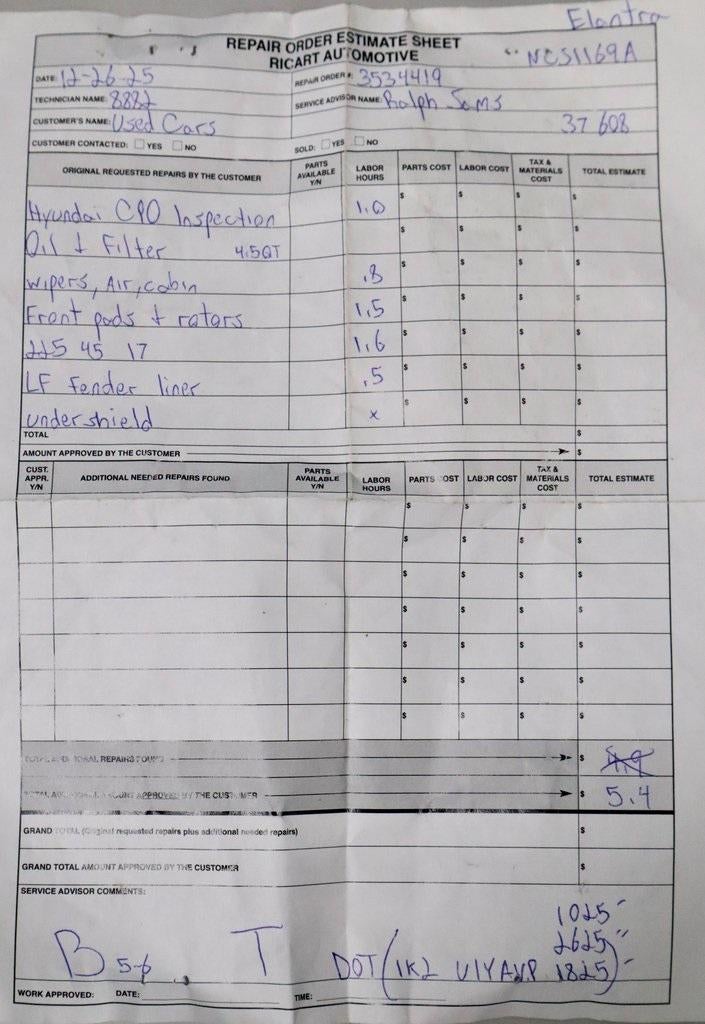 Elantra
REPAIR ORDER ESTIMATE SHEET
RICART AUTOMOTIVE
NCS1169A
DATE: 12-26-25
REPAIR ORDER #: 3534419
TECHNICIAN NAME: 8882
SERVICE ADVISOR NAME: Ralph Sams
CUSTOMER'S NAME: Used Cars
37 608
CUSTOMER CONTACTED: YES NO SOLD: YES NO
ORIGINAL REQUESTED REPAIRS BY THE CUSTOMER PARTS AVAILABLE Y/N LABOR HOURS PARTS COST LABOR COST TAX & MATERIALS COST TOTAL ESTIMATE
Hyundai CPO Inspection 1.0 $ $ $ $
Oil + Filter 4.5QT $ $ $ $
wipers, Air, cabin .8 $ $ $ $
Front pads + rotors 1.5 $ $ $ $
225 45 17 1.6 $ $ $ $
LF fender liner .5 $ $ $ $
undershield x $ $ $ $
TOTAL $
AMOUNT APPROVED BY THE CUSTOMER $
CUST. APPR. Y/N ADDITIONAL NEEDED REPAIRS FOUND PARTS AVAILABLE Y/N LABOR HOURS PARTS COST LABOR COST TAX & MATERIALS COST TOTAL ESTIMATE
$ $ $ $
$ $ $ $
$ $ $ $
$ $ $ $
$ $ $ $
$ $ $ $
$ $ $ $
TOTAL ADDITIONAL REPAIRS FOUND $ 4.9
TOTAL ADDITIONAL AMOUNT APPROVED BY THE CUSTOMER $ 5.4
GRAND TOTAL (Original requested repairs plus additional needed repairs) $
GRAND TOTAL AMOUNT APPROVED BY THE CUSTOMER $
SERVICE ADVISOR COMMENTS:
1025
2625
B 5-6 T DOT (1K2 U1YAVP 1825)
WORK APPROVED: DATE: TIME: